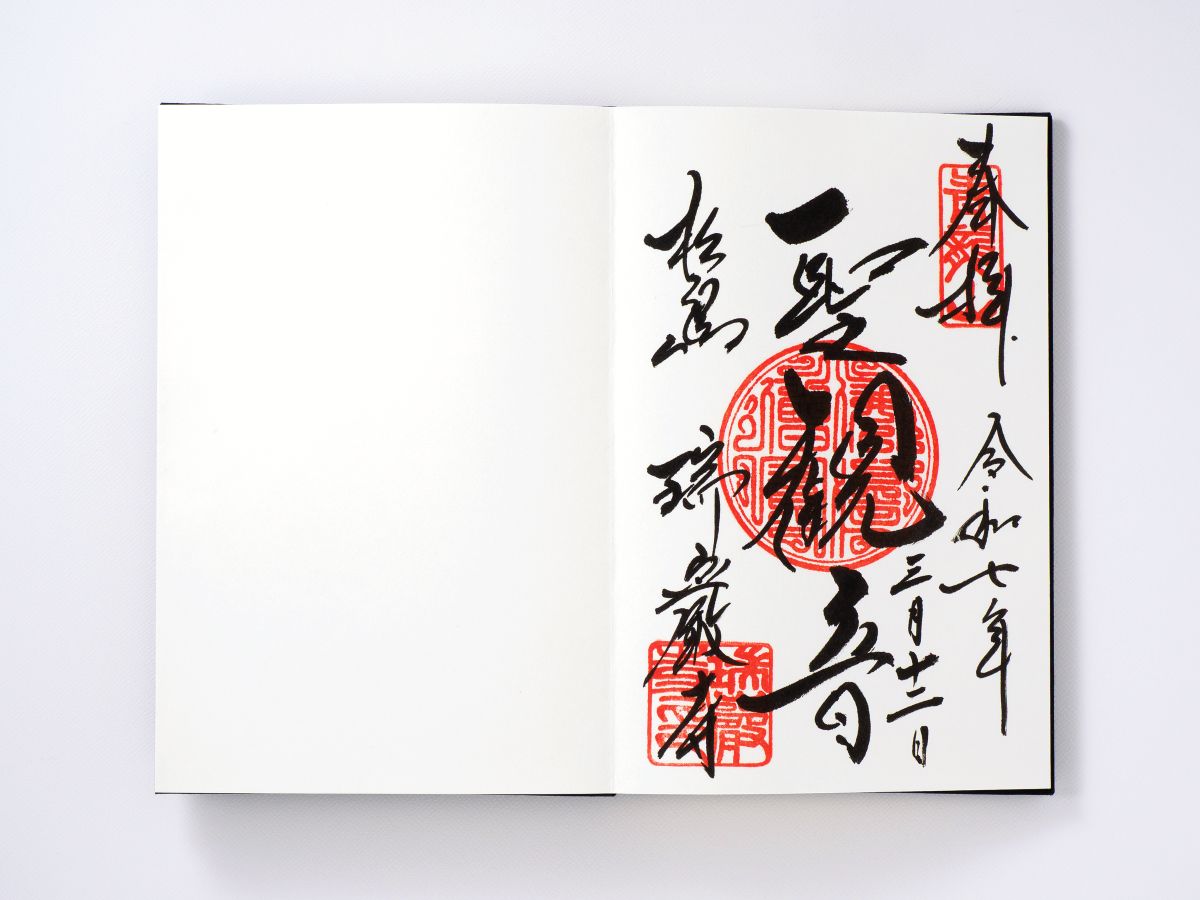 奉拝
令和七年
三月十二日
聖観音
松島
瑞巌寺